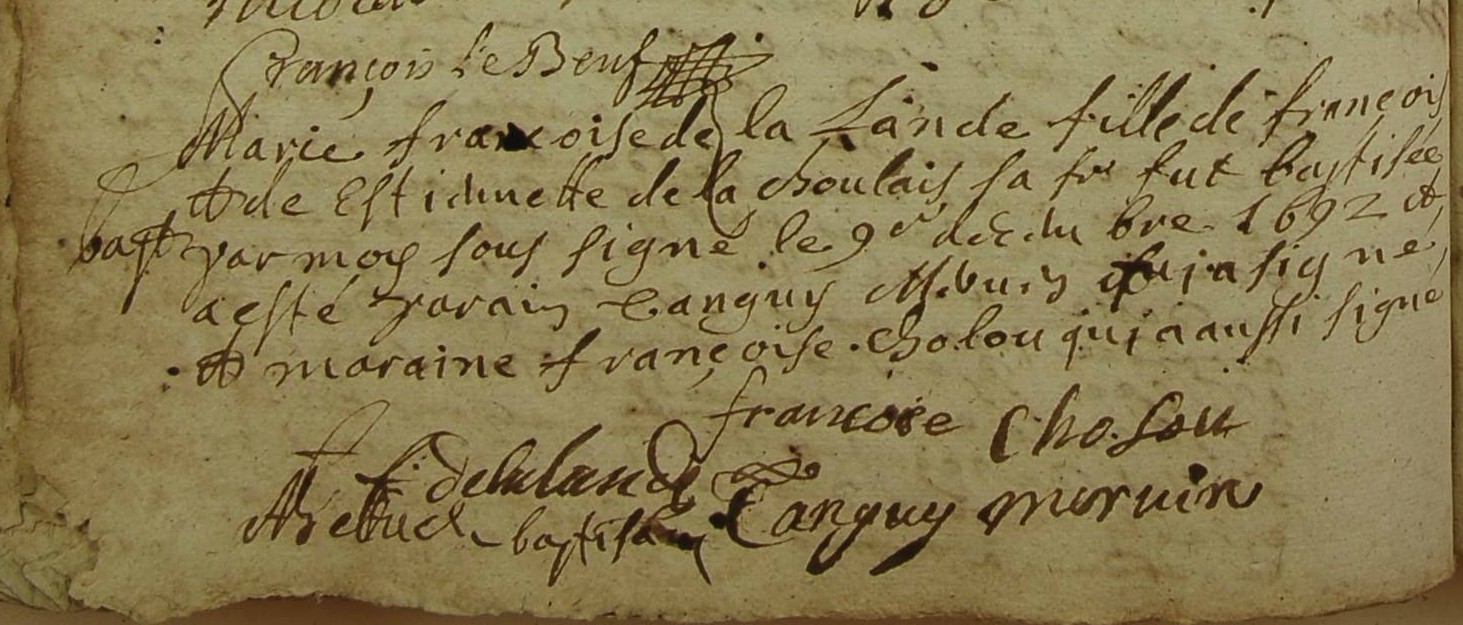 François Le Beuf
Marie francoise de la Lande fille de françois
et de Estiennette de la choulais sa fe fut baptisée
bapt par moy sous signé le 9e decembre 1692 et
a esté parain Tanguy qui a signé
et maraine françoise cholou qui a aussi signé
francoise Cholou
F delalande
Tanguy morvin
baptisam